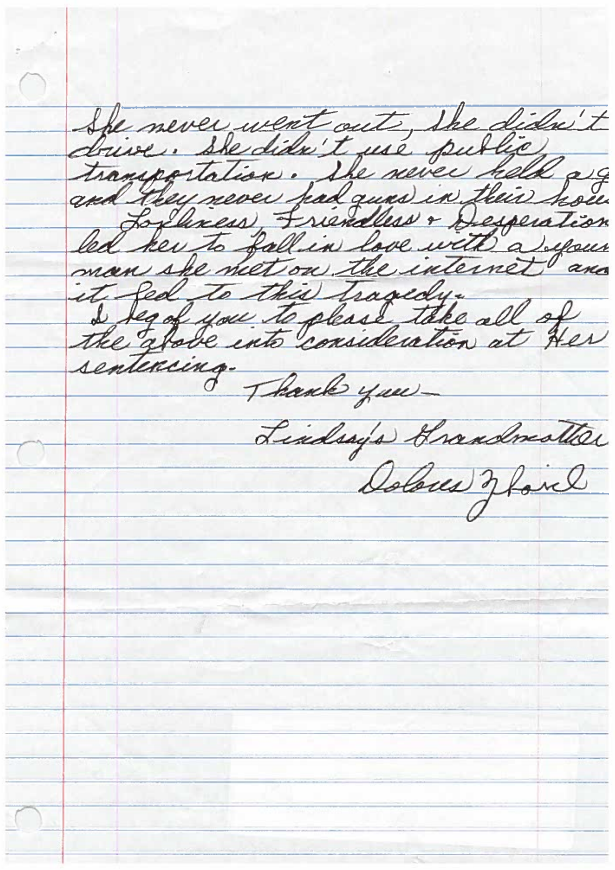 She never went out, she didn't
drive. She didn't use public
transportation. She never held a g
and they never had guns in their hou
Lonliness, Friendless & Desperation
led her to fall in love with a youn
man she met on the internet and
it led to this tragedy.
I beg of you to please take all of
the above into consideration at Her
sentencing.
Thank you—
Lindsay's Grandmother
Dolores